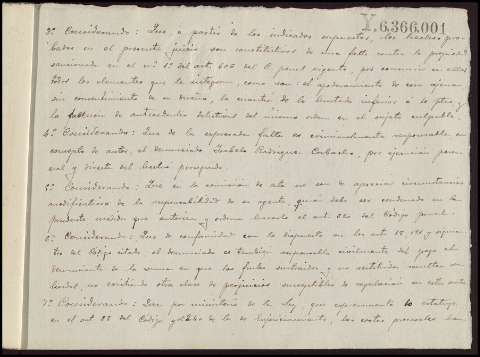 Y.6.366.001
3º Considerando: Que, a partir de los indicados supuestos, los hechos pro-
bados en el presente juicio son constitutivos de una falta contra la propiedad
sancionada en el nº 1º del art. 606 del C. penal vigente, por concurrir en ellos
todos los elementos que la integran, como son: el apoderamiento de cosa ajena
sin consentimiento de su dueño, la cuantía de lo hurtado inferior a
la de antecedentes delictivos del mismo orden en el sujeto culpable.
4º Considerando: Que de la expresada falta es criminalmente responsable en
concepto de autor, el denunciado Rodriguez por ejecución perso-
nal y directa del hecho perseguido.
5º Considerando: Que en la comisión de ata no son de apreciar circunstancias
modificativas de la responsabilidad de su agente, quien debe ser condenado en la
prudente medida que autoriza y ordena el art. del Código penal.
6º Considerando: Que de conformidad con lo dispuesto en los art. 19, y siguien-
tes del Código citado el denunciado es tambien responsable civilmente del pago al
denunciante de la suma en que los frutos sustraidos y no restituidos resultan va-
lorados, no existiendo otra clase de perjuicios susceptibles de reparación en este
7º Considerando: Que por ministerio de la ley, que expresamente lo estatuye
en el art del Código y de la de Enjuiciamiento, las costas procesales han